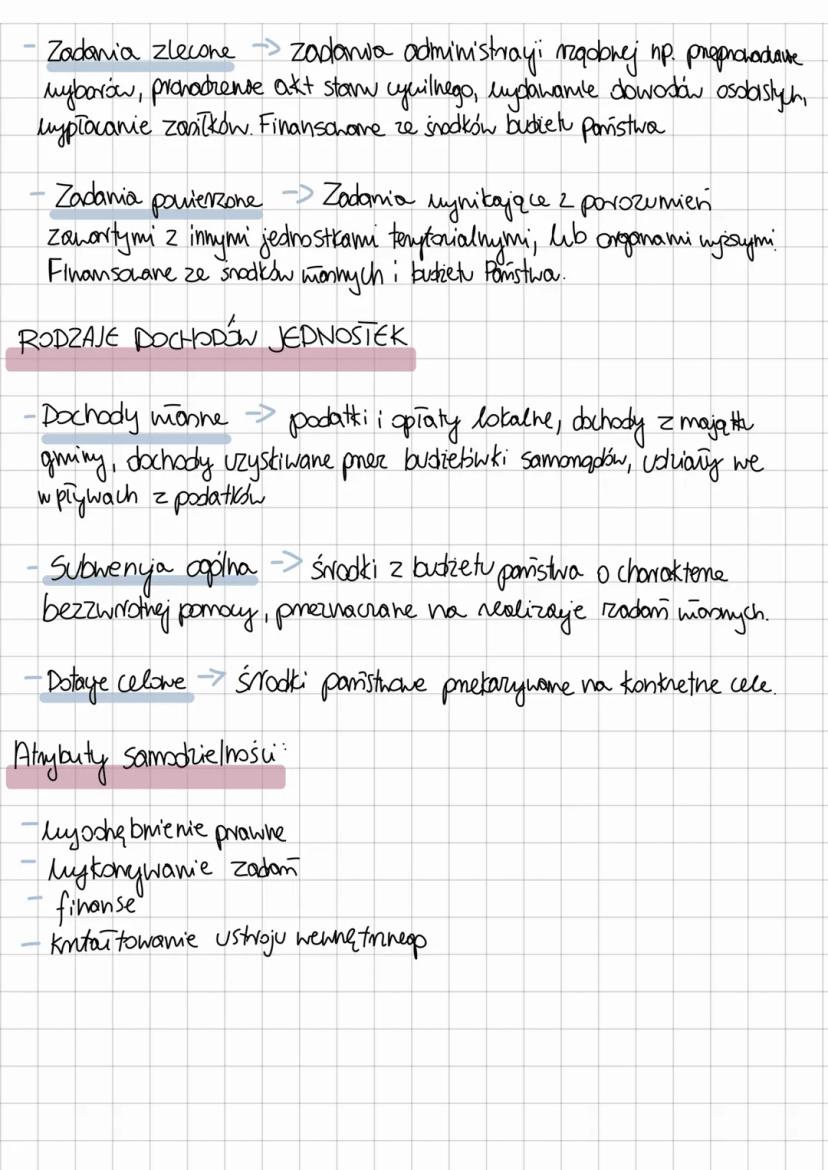 - Zadania zlecone -> zadania administracji rządowej np. przeprowadzanie
wyborów, prowadzenie akt stanu cywilnego, wydawanie dowodów osobistych,
wypłacanie zasiłków. Finansowane ze środków budżetu państwa
- Zadania powierzone -> Zadania wynikające z porozumień
zawartymi z innymi jednostkami terytorialnymi, lub organami wyższymi.
Finansowane ze środków własnych i budżetu Państwa.
RODZAJE DOCHODÓW JEDNOSTEK
- Dochody własne -> podatki i opłaty lokalne, dochody z majątku
gminy, dochody uzyskiwane przez budżetówki samorządów, udziały we
wpływach z podatków
- Subwencja ogólna -> środki z budżetu państwa o charakterze
bezzwrotnej pomocy, przeznaczane na realizację zadań własnych.
- Dotacje celowe -> środki państwowe przekazywane na konkretne cele.
Atrybuty samodzielności:
- wyodrębnienie prawne
- wykonywanie zadań
- finanse
- kształtowanie ustroju wewnętrznego